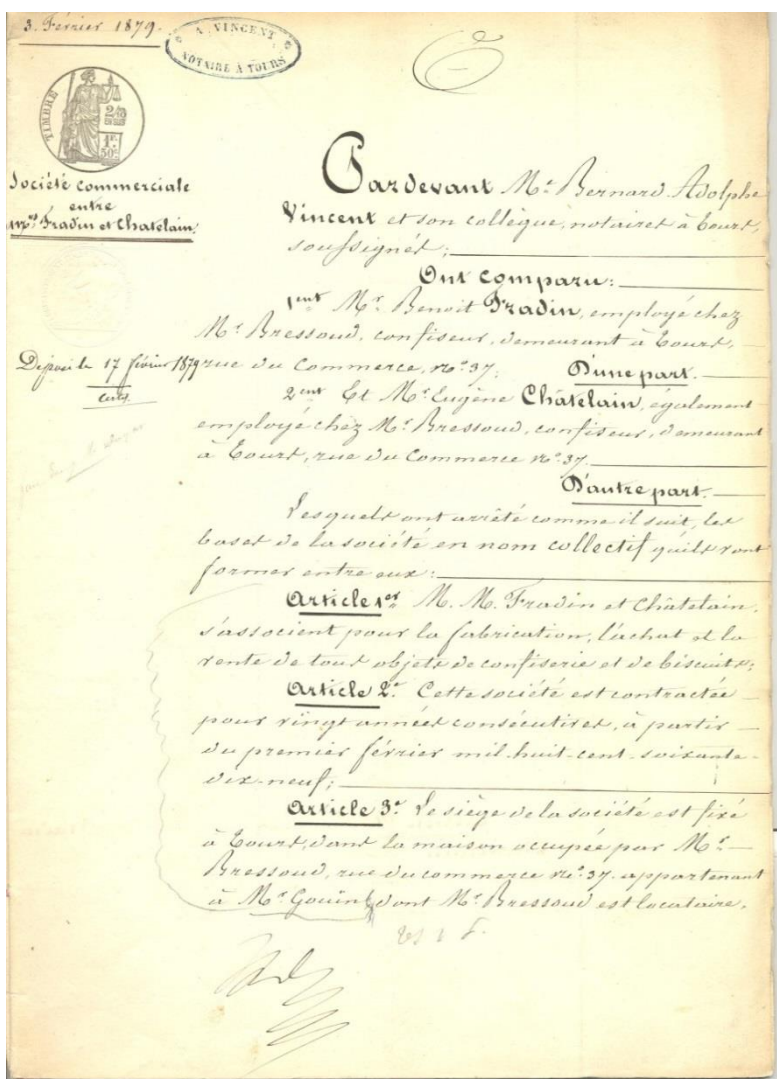 3. Février 1879.
A. VINCENT
NOTAIRE A TOURS
TIMBRE
1F.
50c.
Société commerciale
entre
Mrs Fradin et Chatelain.
Pardevant Me Bernard Adolphe
Vincent et son collègue, notaires à Tours,
soussignés;
Ont comparu:
1ent Mr Benoit Fradin, employé chez
Mr Bressoud, confiseur, demeurant à Tours,
rue du Commerce, no 37; D'une part.
Déposé le 17 février 1879
2ent Et Mr Eugène Châtelain, également
employé chez Mr Bressoud, confiseur, demeurant
à Tours, rue du Commerce no 37.
D'autre part.
Lesquels ont arrêté comme il suit, les
bases de la société en nom collectif qu'ils vont
former entre eux:
Article 1er M. M. Fradin et Châtelain,
s'associent pour la fabrication, l'achat et la
vente de tous objets de confiserie et de biscuits;
Article 2e Cette société est contractée
pour vingt années consécutives, à partir
du premier février mil-huit-cent-soixante-
dix-neuf;
Article 3e Le siège de la société est fixé
à Tours, dans la maison occupée par Mr
Bressoud, rue du commerce no 37. appartenant
à Mr Gouin, dont Mr Bressoud est locataire.